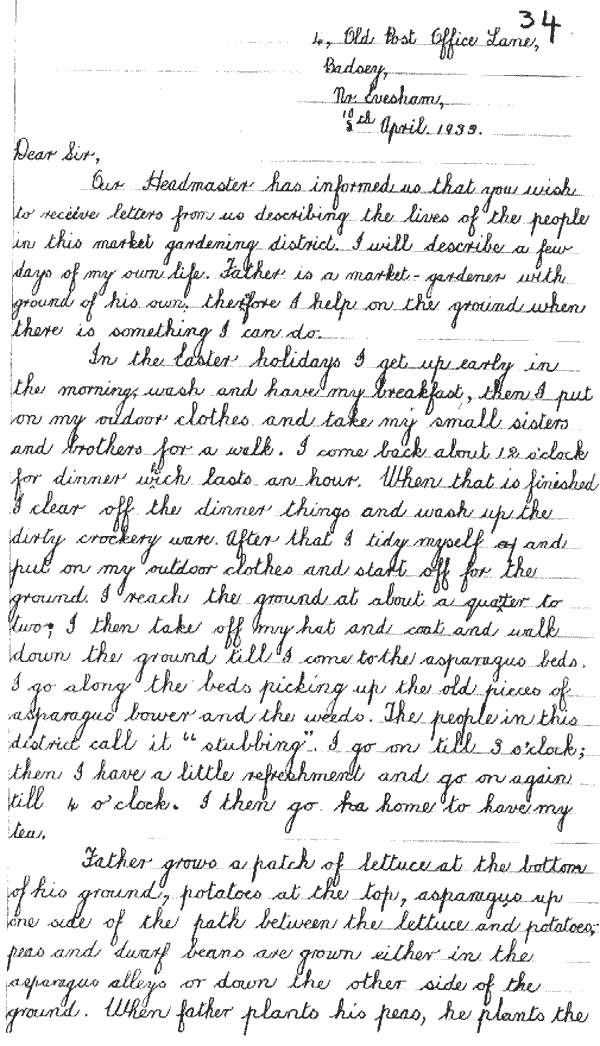 34
4, Old Post Office Lane,
Badsey,
Nr. Evesham,
10th April. 1933.
Dear Sir,
Our Headmaster has informed us that you wish
to receive letters from us describing the lives of the people
in this market gardening district. I will describe a few
days of my own life. Father is a market-gardener with
ground of his own; therefore I help on the ground when
there is something I can do.
In the Easter holidays I get up early in
the morning; wash and have my breakfast, then I put
on my outdoor clothes and take my small sisters
and brothers for a walk. I come back about 12 o'clock
for dinner which lasts an hour. When that is finished
I clear off the dinner things and wash up the
dirty crockery ware. After that I tidy myself and
put on my outdoor clothes and start off for the
ground. I reach the ground at about a quater to
two; I then take off my hat and coat and walk
down the ground till I come to the asparagus beds.
I go along the beds picking up the old pieces of
asparagus bower and the weeds. The people in this
district call it "stubbing". I go on till 3 o'clock;
then I have a little refreshment and go on again
till 4 o'clock. I then go ha home to have my
tea.
Father grows a patch of lettuce at the bottom
of his ground, potatoes at the top, asparagus up
one side of the path between the lettuce and potatoes;
peas and dwarf beans are grown either in the
asparagus alleys or down the other side of the
ground. When father plants his peas, he plants the